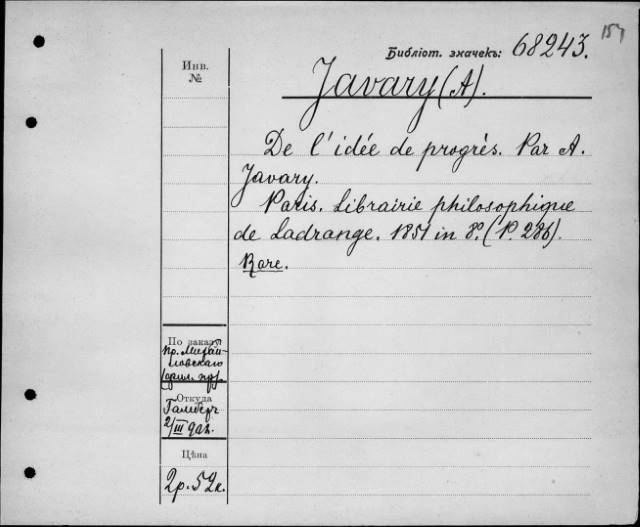 157
Библіот. значекъ: 68243.
Инв.
№
Javary (A).
De l'idée de progrès. Par A.
Javary.
Paris. Librairie philosophique
de Ladrange. 1851 in 8º. (P. 286).
Rare.
По заказу
пр. Михай-
ловскаго
Откуда
2/III
Цѣна
2р. 52к.